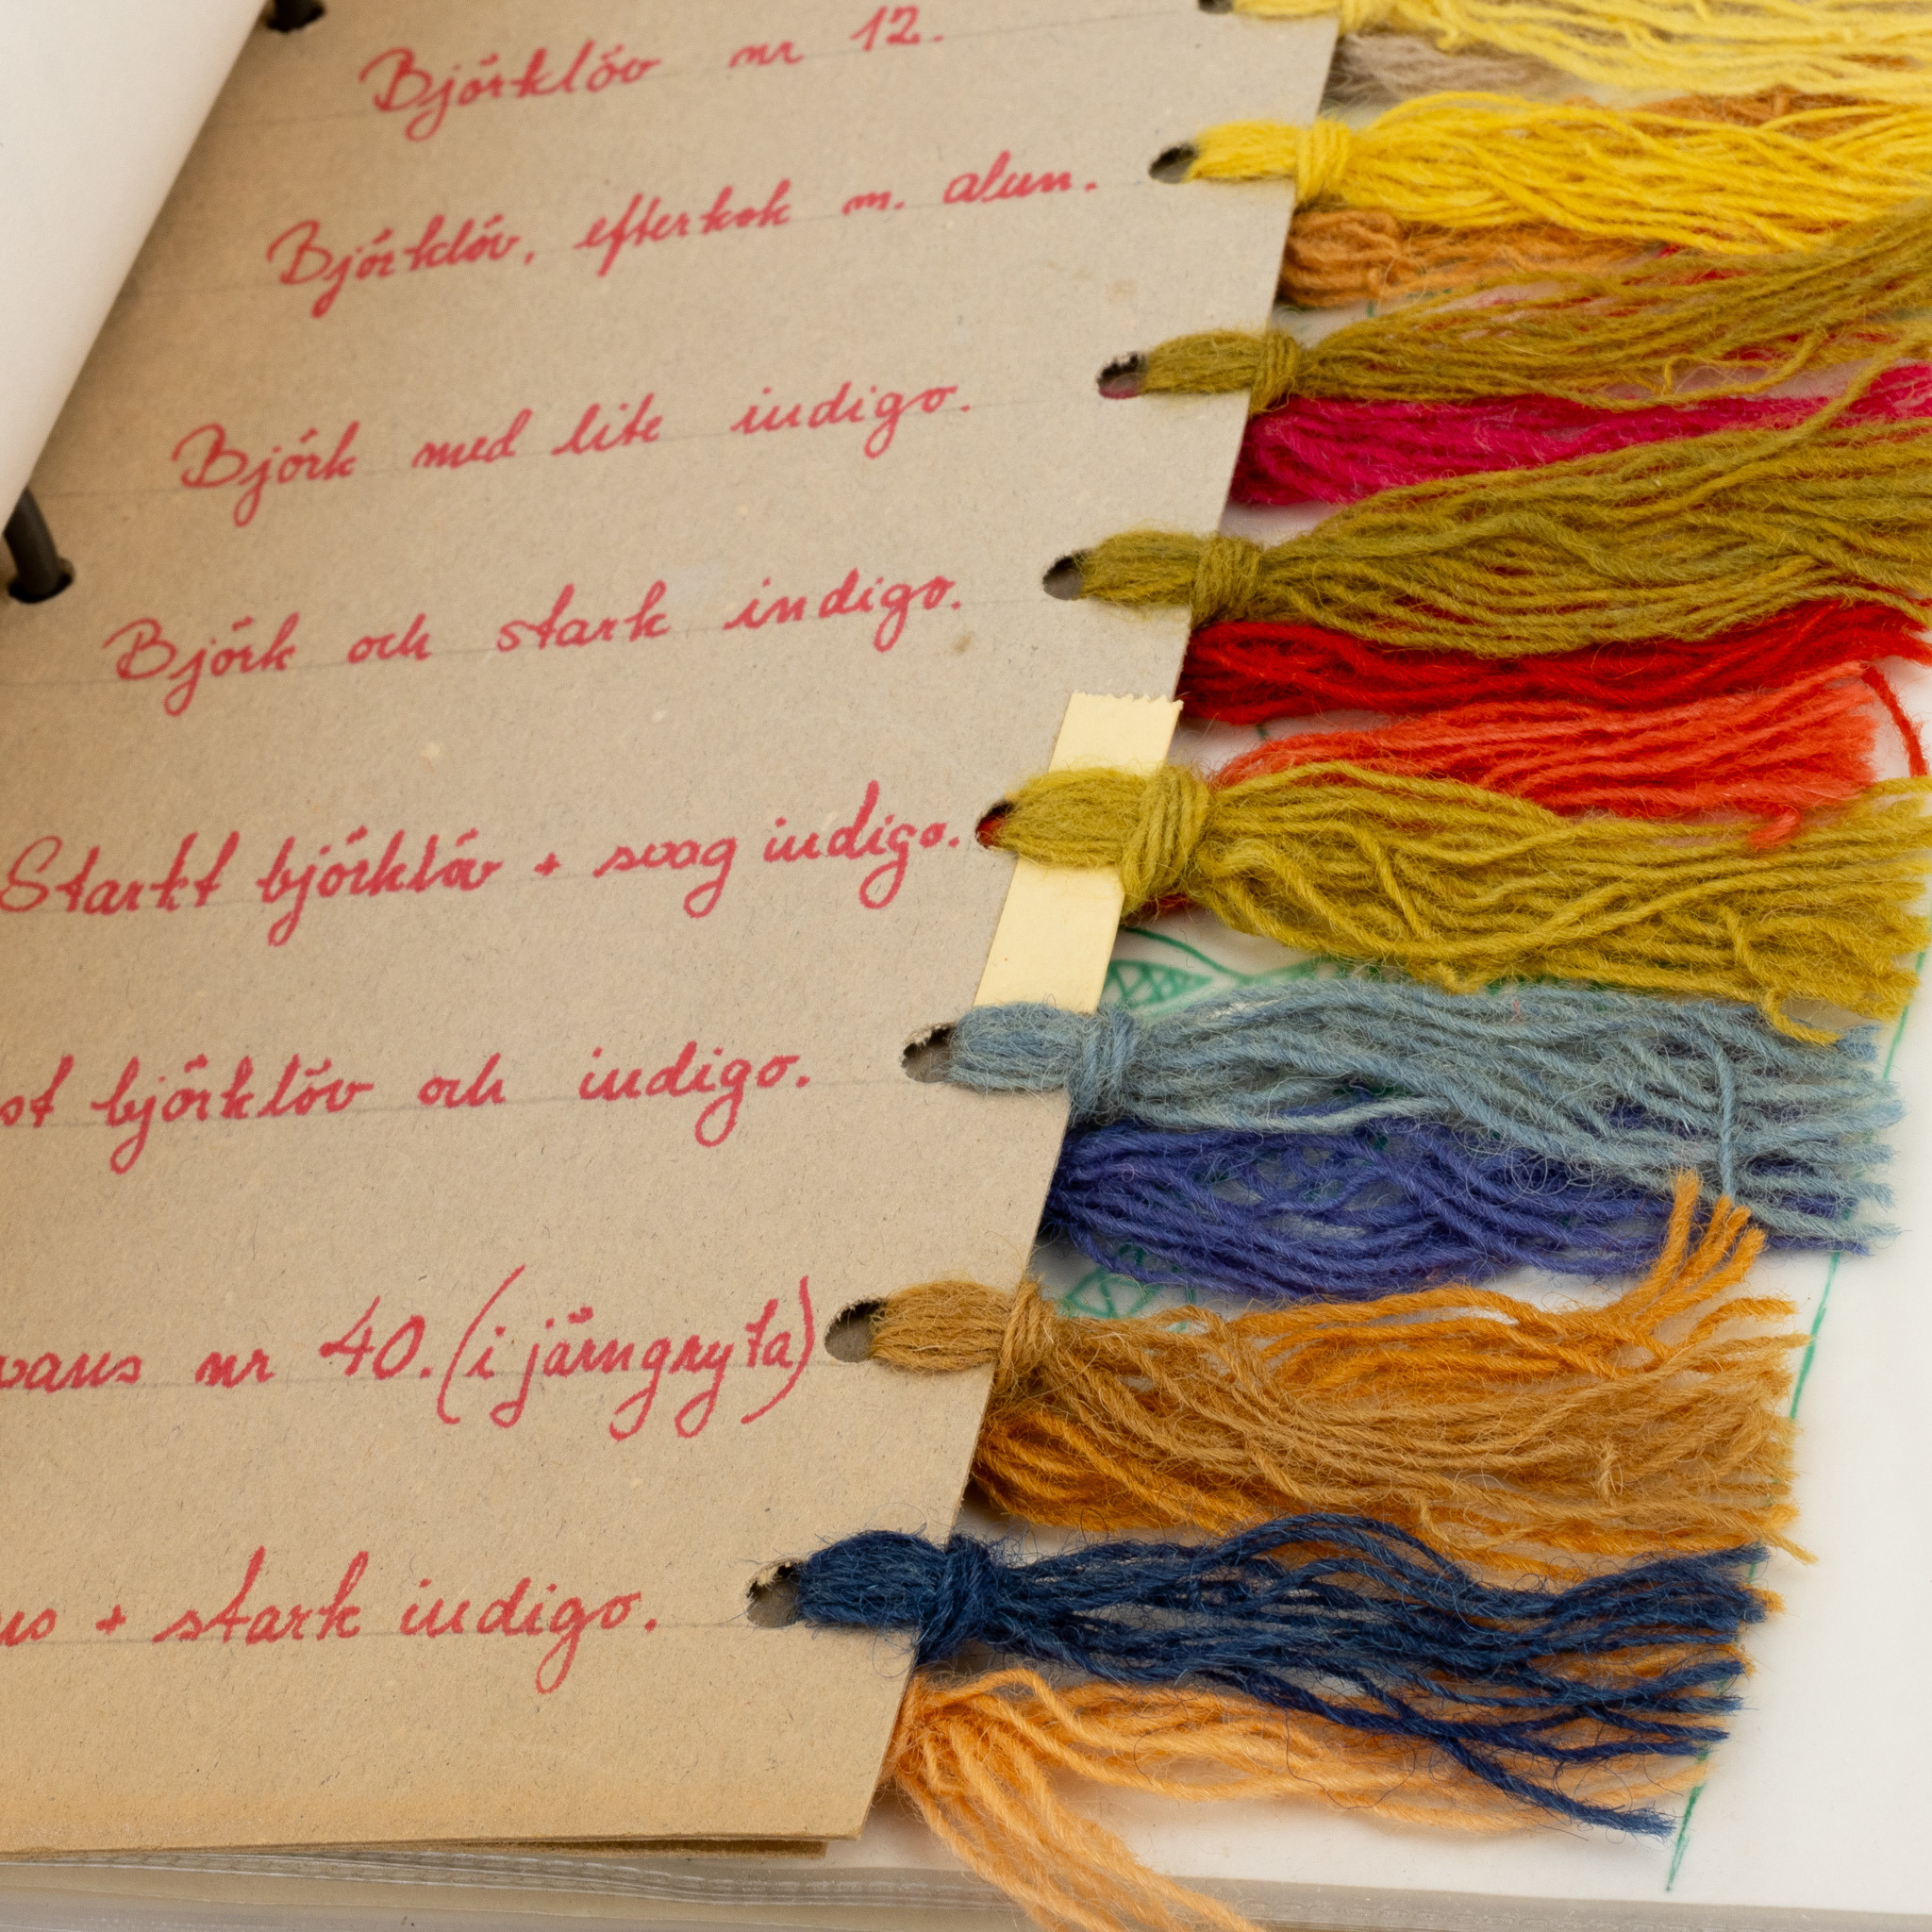 Björklöv nr 12.
Björklöv, efterkok m. alun.
Björk med lite indigo.
Björk och stark indigo.
Starkt björklöv + svag indigo.
st björklöv och indigo.
vans nr 40. (i järngryta)
ns + stark indigo.